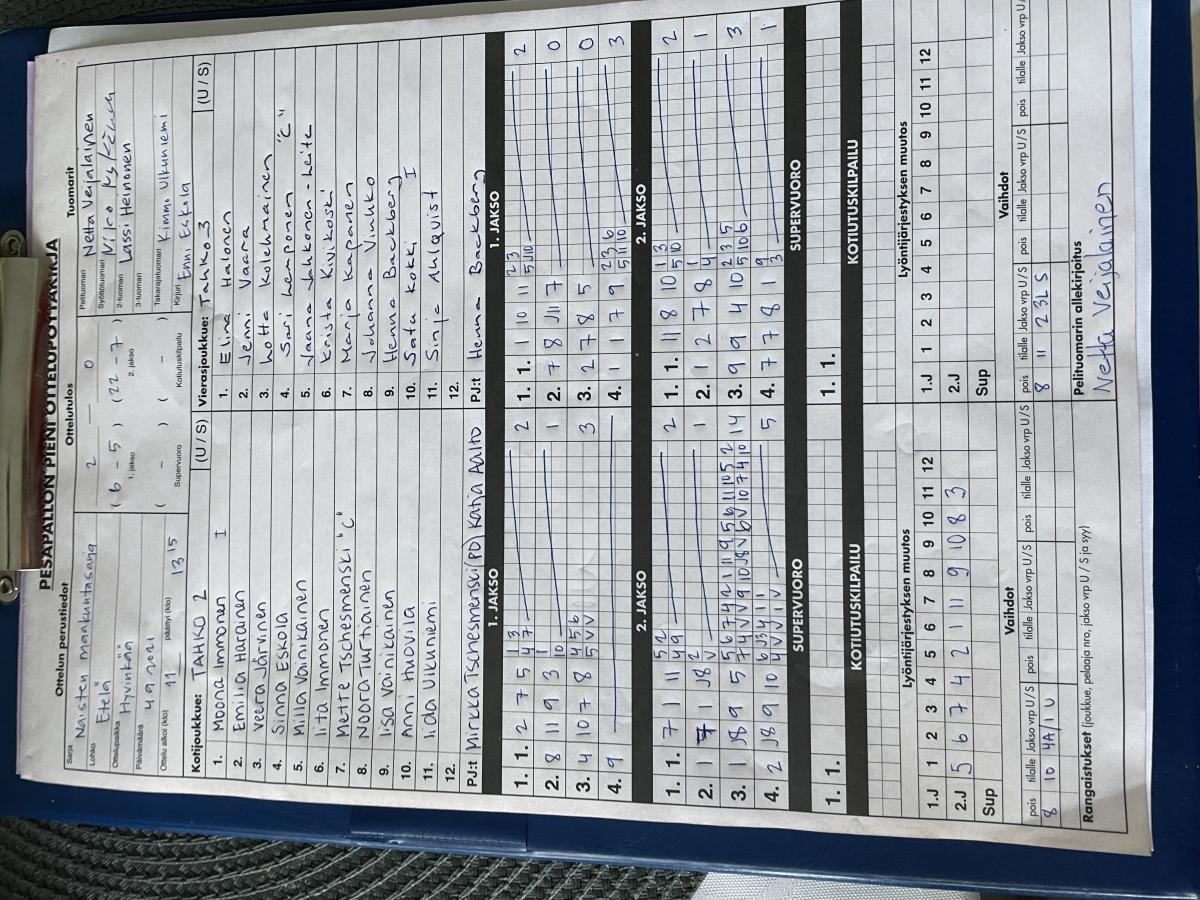 PESÄPALLON PIENI OTTELUPÖYTÄKIRJA
Ottelun perustiedot
Sarja Naisten maakuntasarja
Lohko Etelä
Ottelupaikka Hyvinkää
Päivämäärä 4 9 2021
Ottelu alkoi (klo) 11 päättyi (klo) 13 15
Ottelutulos
2 — 0
( 6 - 5 ) ( 22 - 7 )
1. jakso 2. jakso
( - ) ( - )
Supervuoro Kotiutuskilpailu
Tuomarit
Pelituomari Netta Veijalainen
Syöttötuomari Niko
2-tuomari Lassi Heinonen
3-tuomari
Takarajatuomari Kimmo Ulkuniemi
Kirjuri Enni Eskola
Kotijoukkue: TAHKO 2 (U / S)
1. Moona Immonen I
2. Emilia Harainen
3. Veera Järvinen
4. Sinna Eskola
5. Milla Vainikainen
6. Iita Immonen
7. Mette Tschesmenski "C"
8. Noora Turtiainen
9. Iisa Vainikainen
10. Anni Huovila
11. Iida Ulkuniemi
12.
PJ:t Mirkka Tschesmenski (PD) Katja Aalto
Vierasjoukkue: Tahko 3 (U / S)
1. Elina Halonen
2. Jenni Vaara
3. Lotta Kolehmainen
4. Sari Lemponen "C"
5. Jaana Jahkonen-Leite
6. Krista Kivikoski
7. Manja Kapanen
8. Johanna Vinhko
9. Henna Backberg
10. Satu Kokki I
11. Sinja Ahlqvist
12.
PJ:t Henna Backberg
1. JAKSO
1. 1. 2 7 5 1 3 4 7 2
2. 8 11 9 3 1 10 1
3. 4 10 7 8 4 5 6 5 V V 3
4. 9
1. JAKSO
1. 1. 1 10 11 2 3 5 J10 2
2. 7 8 J11 7 0
3. 2 7 8 5 0
4. 1 1 7 9 2 3 6 5 11 10 3
2. JAKSO
1. 1. 7 1 11 5 2 4 9 2
2. 1 1 J8 2 V 1
3. 1 J8 9 5 5 6 7 4 2 1 11 9 5 6 11 10 5 2 7 4 V V 9 10 J8 V 6 V 10 7 4 10 14
4. 2 J8 9 10 6 J3 4 1 1 4 V V 1 V 5
2. JAKSO
1. 1. 11 8 10 1 3 5 10 2
2. 1 2 7 8 1 4 1
3. 9 9 4 10 2 3 5 5 10 6 3
4. 7 7 8 1 9 3 1
SUPERVUORO
1. 1.
SUPERVUORO
1. 1.
KOTIUTUSKILPAILU
KOTIUTUSKILPAILU
Lyöntijärjestyksen muutos
1.J 1 2 3 4 5 6 7 8 9 10 11 12
2.J 5 6 7 4 2 1 11 9 10 8 3
Sup
Lyöntijärjestyksen muutos
1.J 1 2 3 4 5 6 7 8 9 10 11 12
2.J
Sup
Vaihdot
pois tilalle Jakso vrp U/S pois tilalle Jakso vrp U/S pois tilalle Jakso vrp U/S
8 10 4A/1 U
Vaihdot
pois tilalle Jakso vrp U/S pois tilalle Jakso vrp U/S pois tilalle Jakso vrp U/
8 11 23L S
Rangaistukset (joukkue, pelaaja nro, jakso vrp U / S ja syy)
Pelituomarin allekirjoitus
Netta Veijalainen